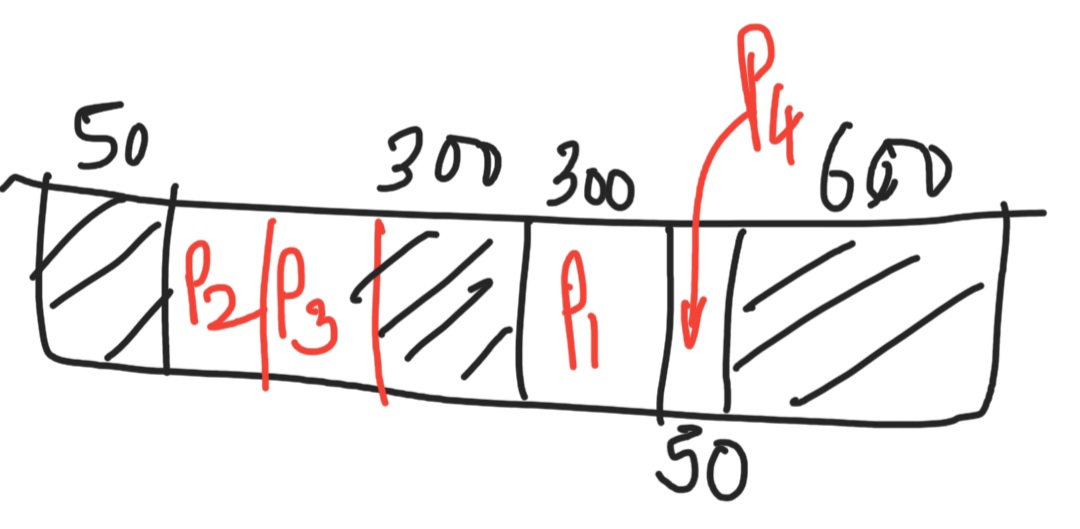 P4
50 300 300 600
P2 P3 P1
50